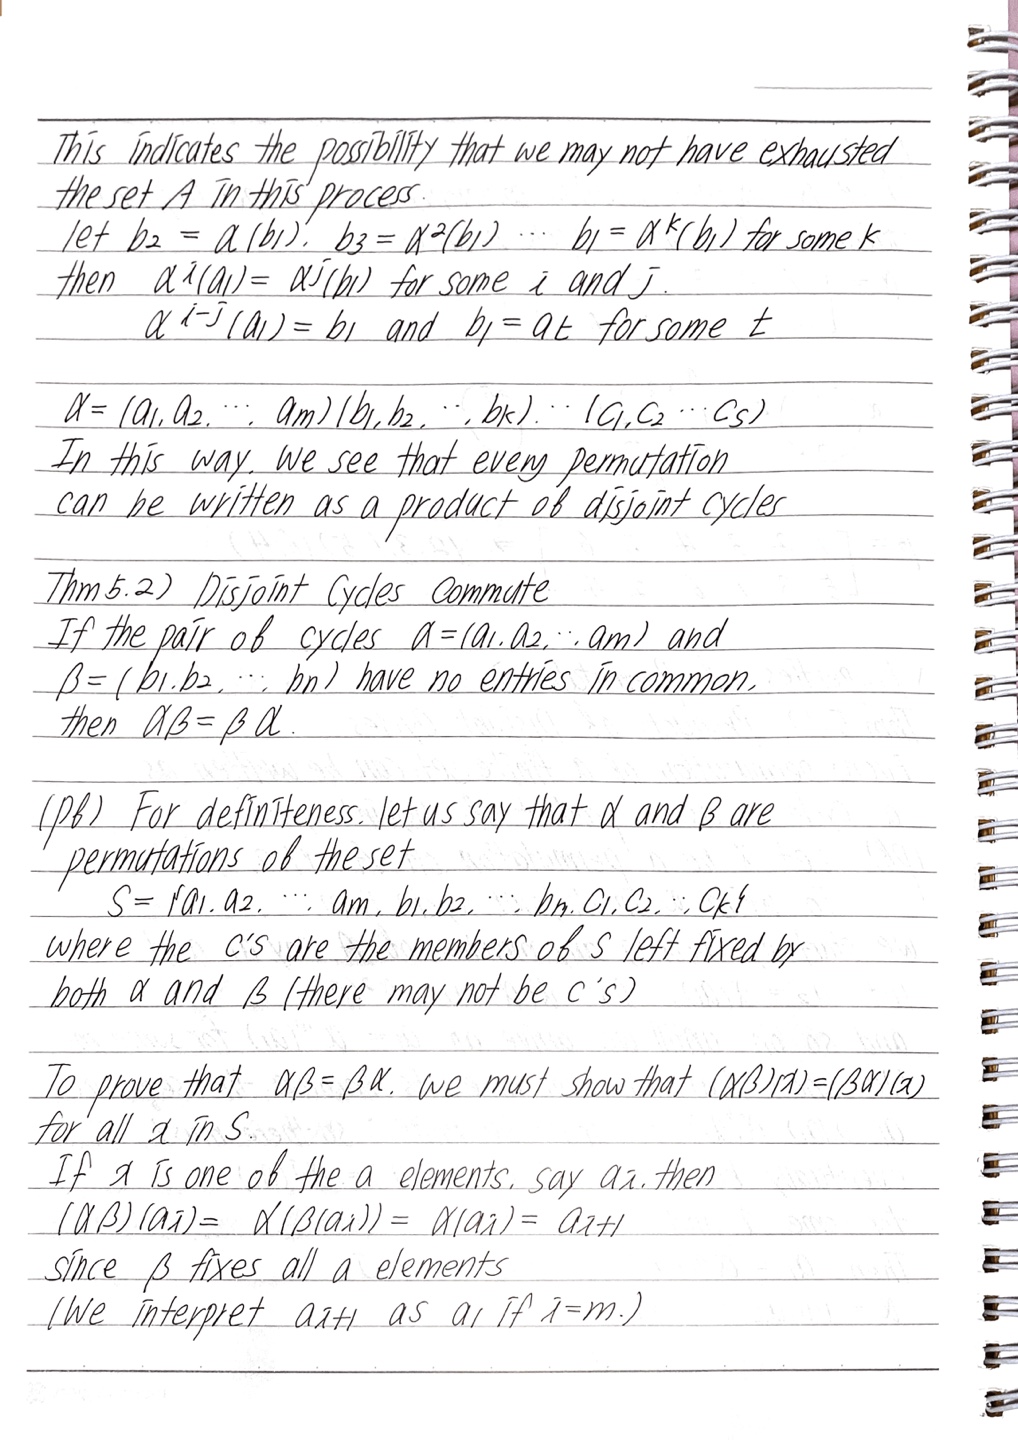 This indicates the possibility that we may not have exhausted
the set A in this process.
let b₂ = α(b₁). b₃ = α²(b₁) ⋯ b₁ = αᵏ(b₁) for some k
then αⁱ(a₁) = αʲ(b₁) for some i and j.
αⁱ⁻ʲ(a₁) = b₁ and b₁ = at for some t
α = (a₁, a₂, ⋯, am)(b₁, b₂, ⋯, bk). ⋯ (c₁, c₂ ⋯ cs)
In this way. we see that every permutation
can be written as a product of disjoint cycles
Thm 5.2) Disjoint Cycles Commute
If the pair of cycles α = (a₁. a₂, ⋯. am) and
β = (b₁. b₂, ⋯, bn) have no entries in common.
then αβ = βα.
(pf) For definiteness. let us say that α and β are
permutations of the set
S = {a₁. a₂. ⋯ am, b₁. b₂, ⋯, bn. c₁, c₂. ⋯, ck}
where the c's are the members of S left fixed by
both α and β (there may not be c's)
To prove that αβ = βα. we must show that (αβ)(x) = (βα)(x)
for all x in S.
If x is one of the a elements. say ai. then
(αβ)(ai) = α(β(ai)) = α(ai) = ai+1
since β fixes all a elements
(We interpret ai+1 as a₁ if i=m.)